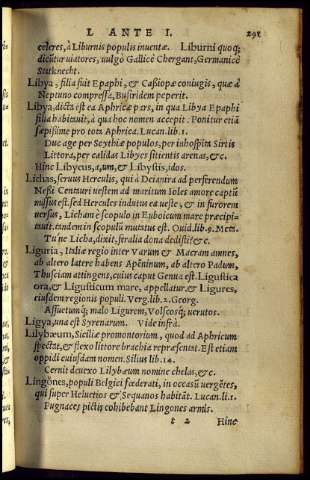 L ANTE I. 291
celeres, à Liburnis populis inuentæ. Liburni quoq;
dicūtur uiatores, uulgò Gallicè Chergant, Germanicè
Statknecht.
Libya, filia fuit Epaphi, & Cassiopæ coniugis, quæ à
Neptuno compressa, Busiridem peperit.
Libya, dicta est ea Aphricæ pars, in qua Libya Epaphi
filia habitauit, à qua hoc nomen accepit. Ponitur etiā
sæpissime pro tota Aphrica. Lucan.lib.1.
Duc age per Scythiæ populos, per inhospitæ Sirtis
Littora, per calidas Libyes sitientis arenas, &c.
Hinc Libycus, a, um, & Libystis, idos.
Lichas, seruus Herculis, qui à Deianira ad perferendum
Nessi Centauri uestem ad maritum Ioles amore captū
missus est, sed Hercules indutus ea ueste, & in furorem
uersus, Licham è scopulo in Euboicum mare præcipi-
tauit, tandem in scopulū mutatus est. Ouid.lib.9.Met.
Tu'ne Licha, dixit, feralia dona dedisti? &c.
Liguria, Italiæ regio inter Varum & Macram amnes,
ab altero latere habens Apēninum, ab altero Padum,
Thusciam attingens, cuius caput Genua est. Ligustica
ora, & Ligusticum mare, appellatur, & Ligures,
eiusdem regionis populi. Verg.lib.2.Georg.
Assuetumq; malo Ligurem, Volscosq; uerutos.
Ligya, una est Syrenarum. Vide infrà.
Lilybæum, Siciliæ promontorium, quod ad Aphricum
spectat, & flexo littore brachia repræsentat. Est etiam
oppidi eiusdam nomen. Silius lib.14.
Cernit deuexo Lilybæum nomine chelas, &c.
Lingónes, populi Belgici fœderati, in occasū uergētes,
qui super Heluetios & Sequanos habitāt. Lucan.li.1.
Pugnaces pictis cohibebant Lingones armis.
t 2 Hinc